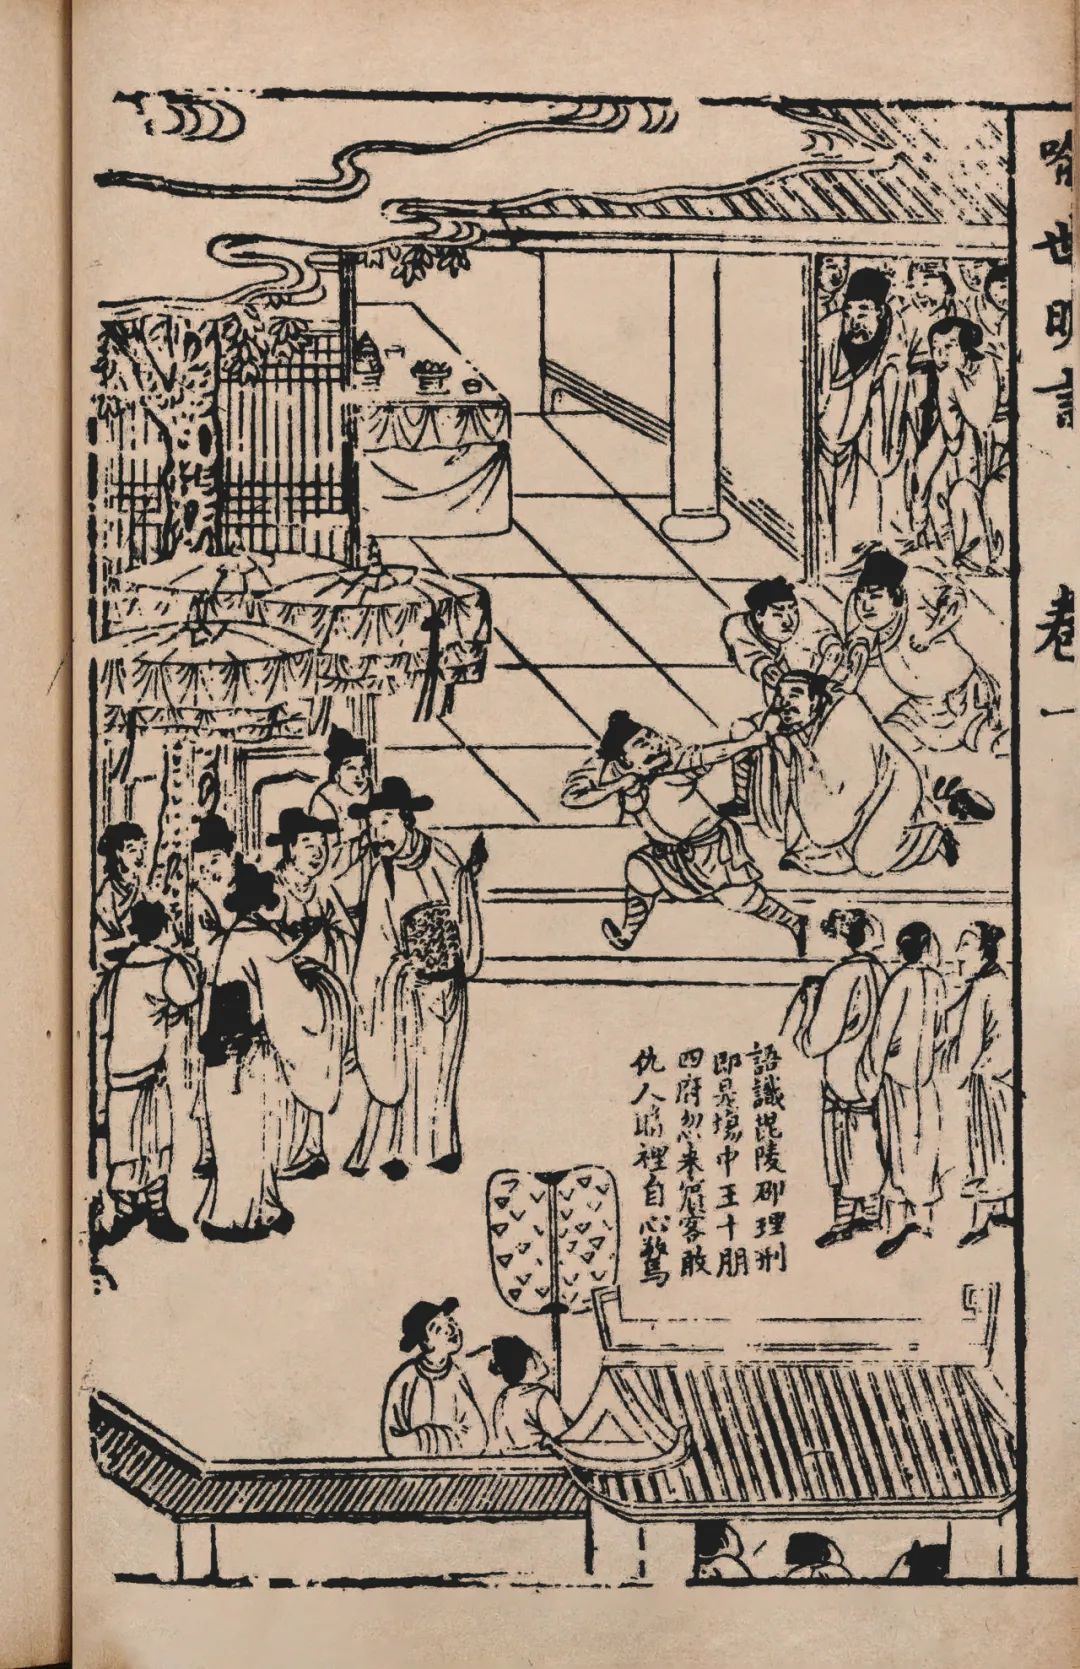 喻世明言 卷一
語識毘陵郡理刑
即是塲中王十朋
四府忽來賔客敢
仇人眼裡自心驚